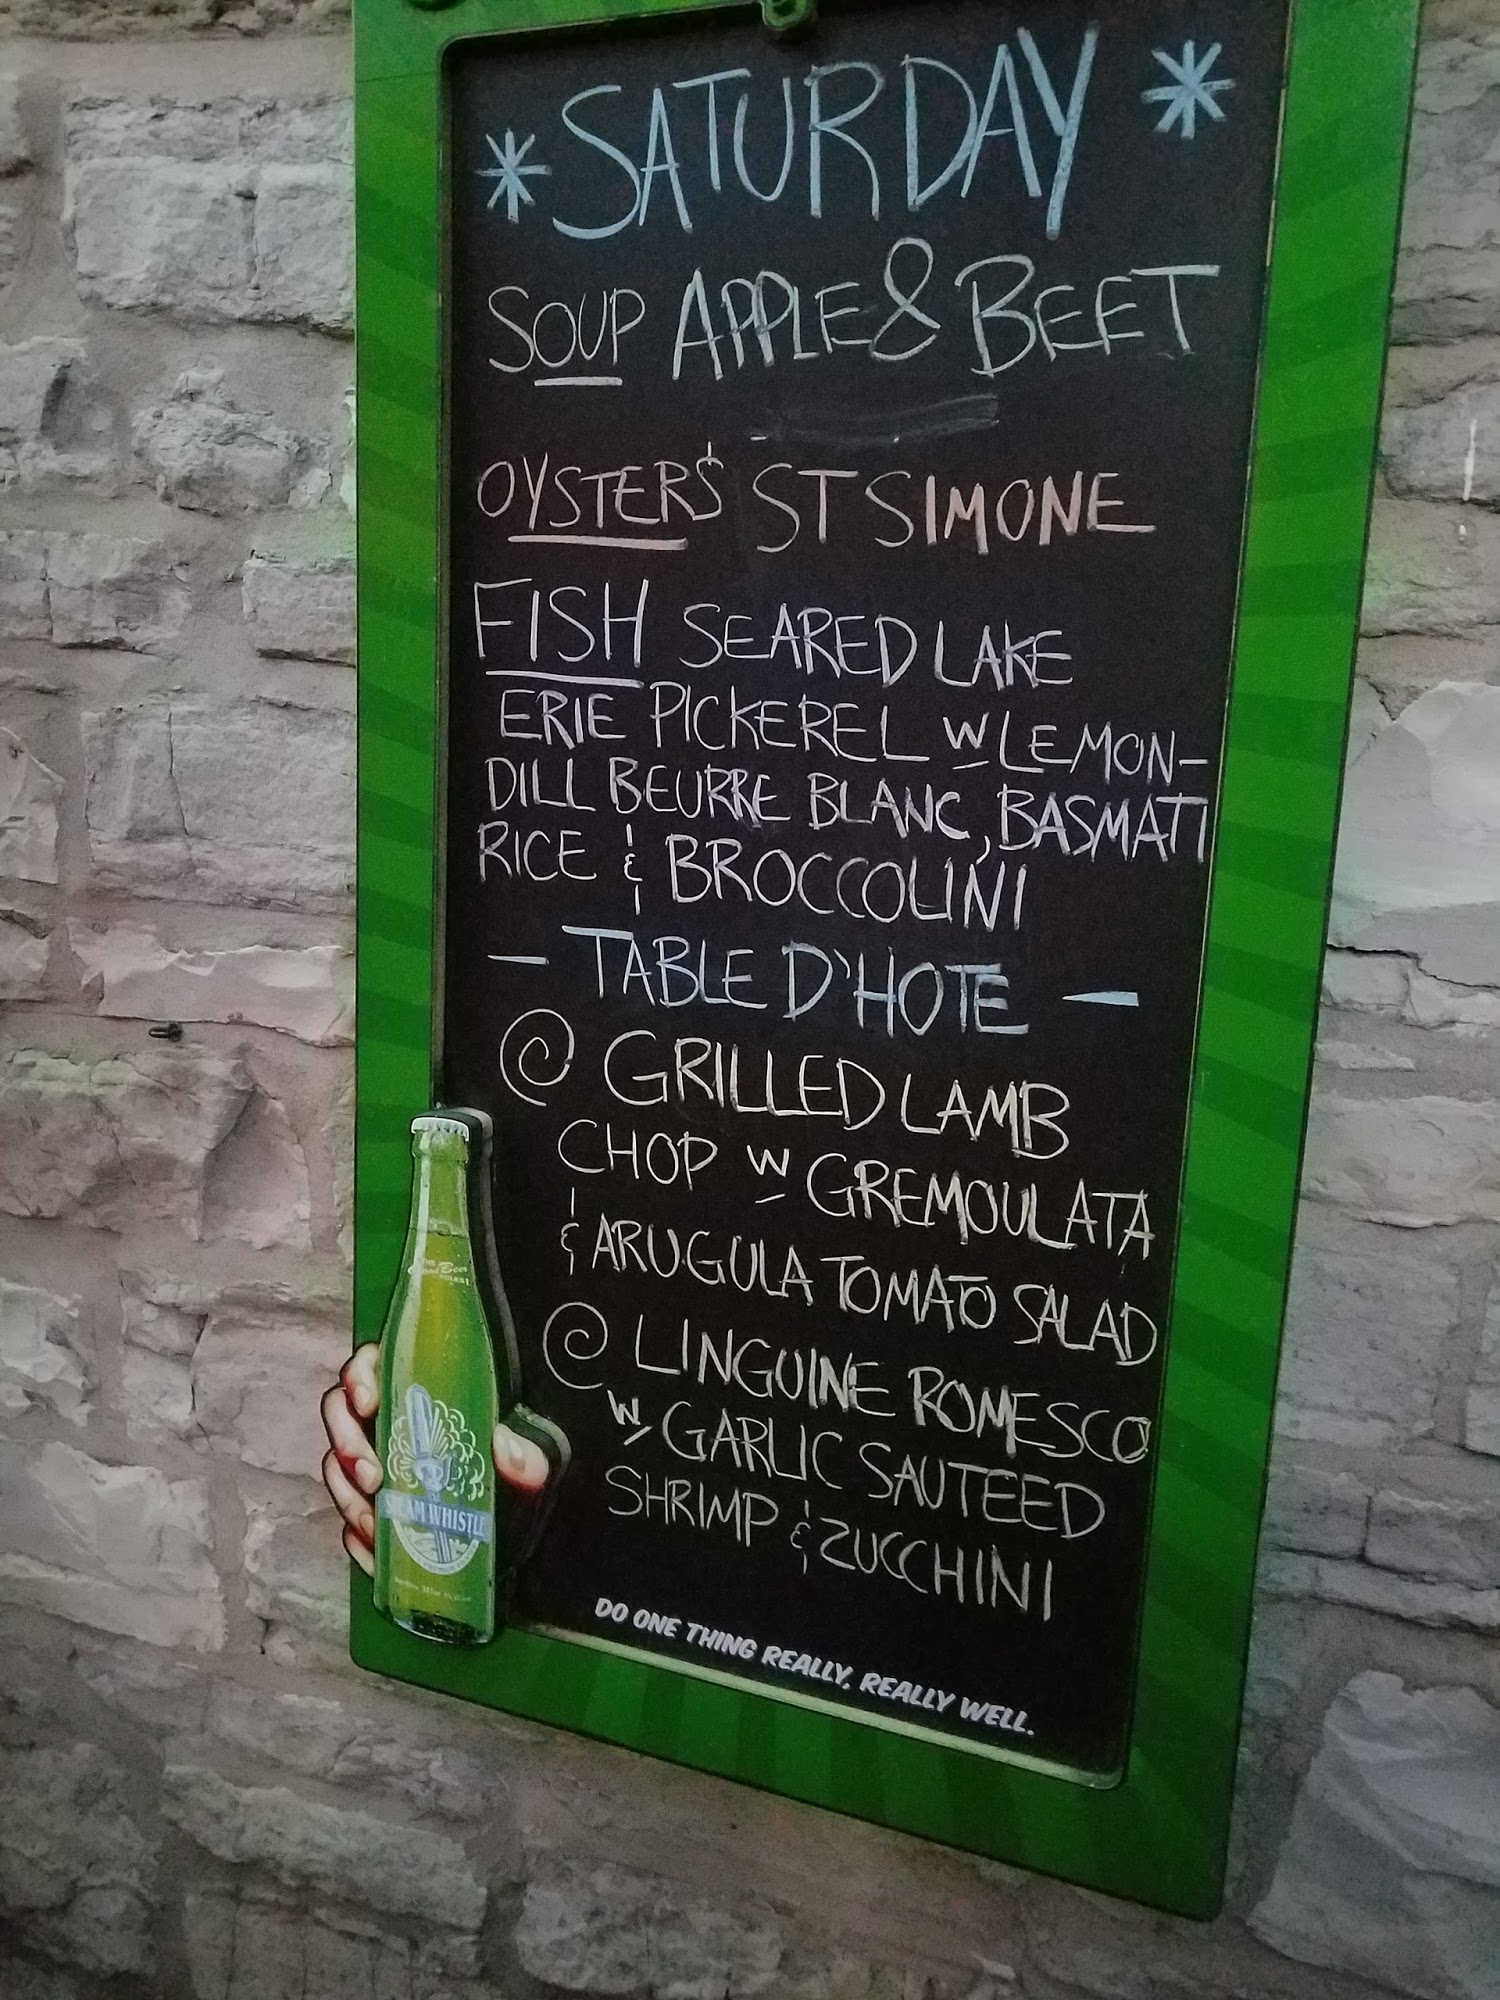 * SATURDAY *
SOUP APPLE & BEET
OYSTERS ST SIMONE
FISH SEARED LAKE
ERIE PICKEREL W LEMON-
DILL BEURRE BLANC, BASMATI
RICE & BROCCOLINI
— TABLE D'HOTE —
@ GRILLED LAMB
CHOP W GREMOULATA
& ARUGULA TOMATO SALAD
@ LINGUINE ROMESCO
W GARLIC SAUTEED
SHRIMP & ZUCCHINI
STEAM WHISTLE
DO ONE THING REALLY, REALLY WELL.